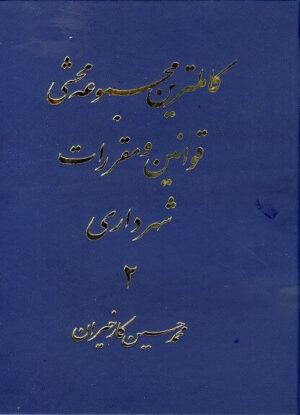 کاملترین مجموعه محشی
قوانین و مقررات
شهرداری
۲
محمد حسین کارخیران